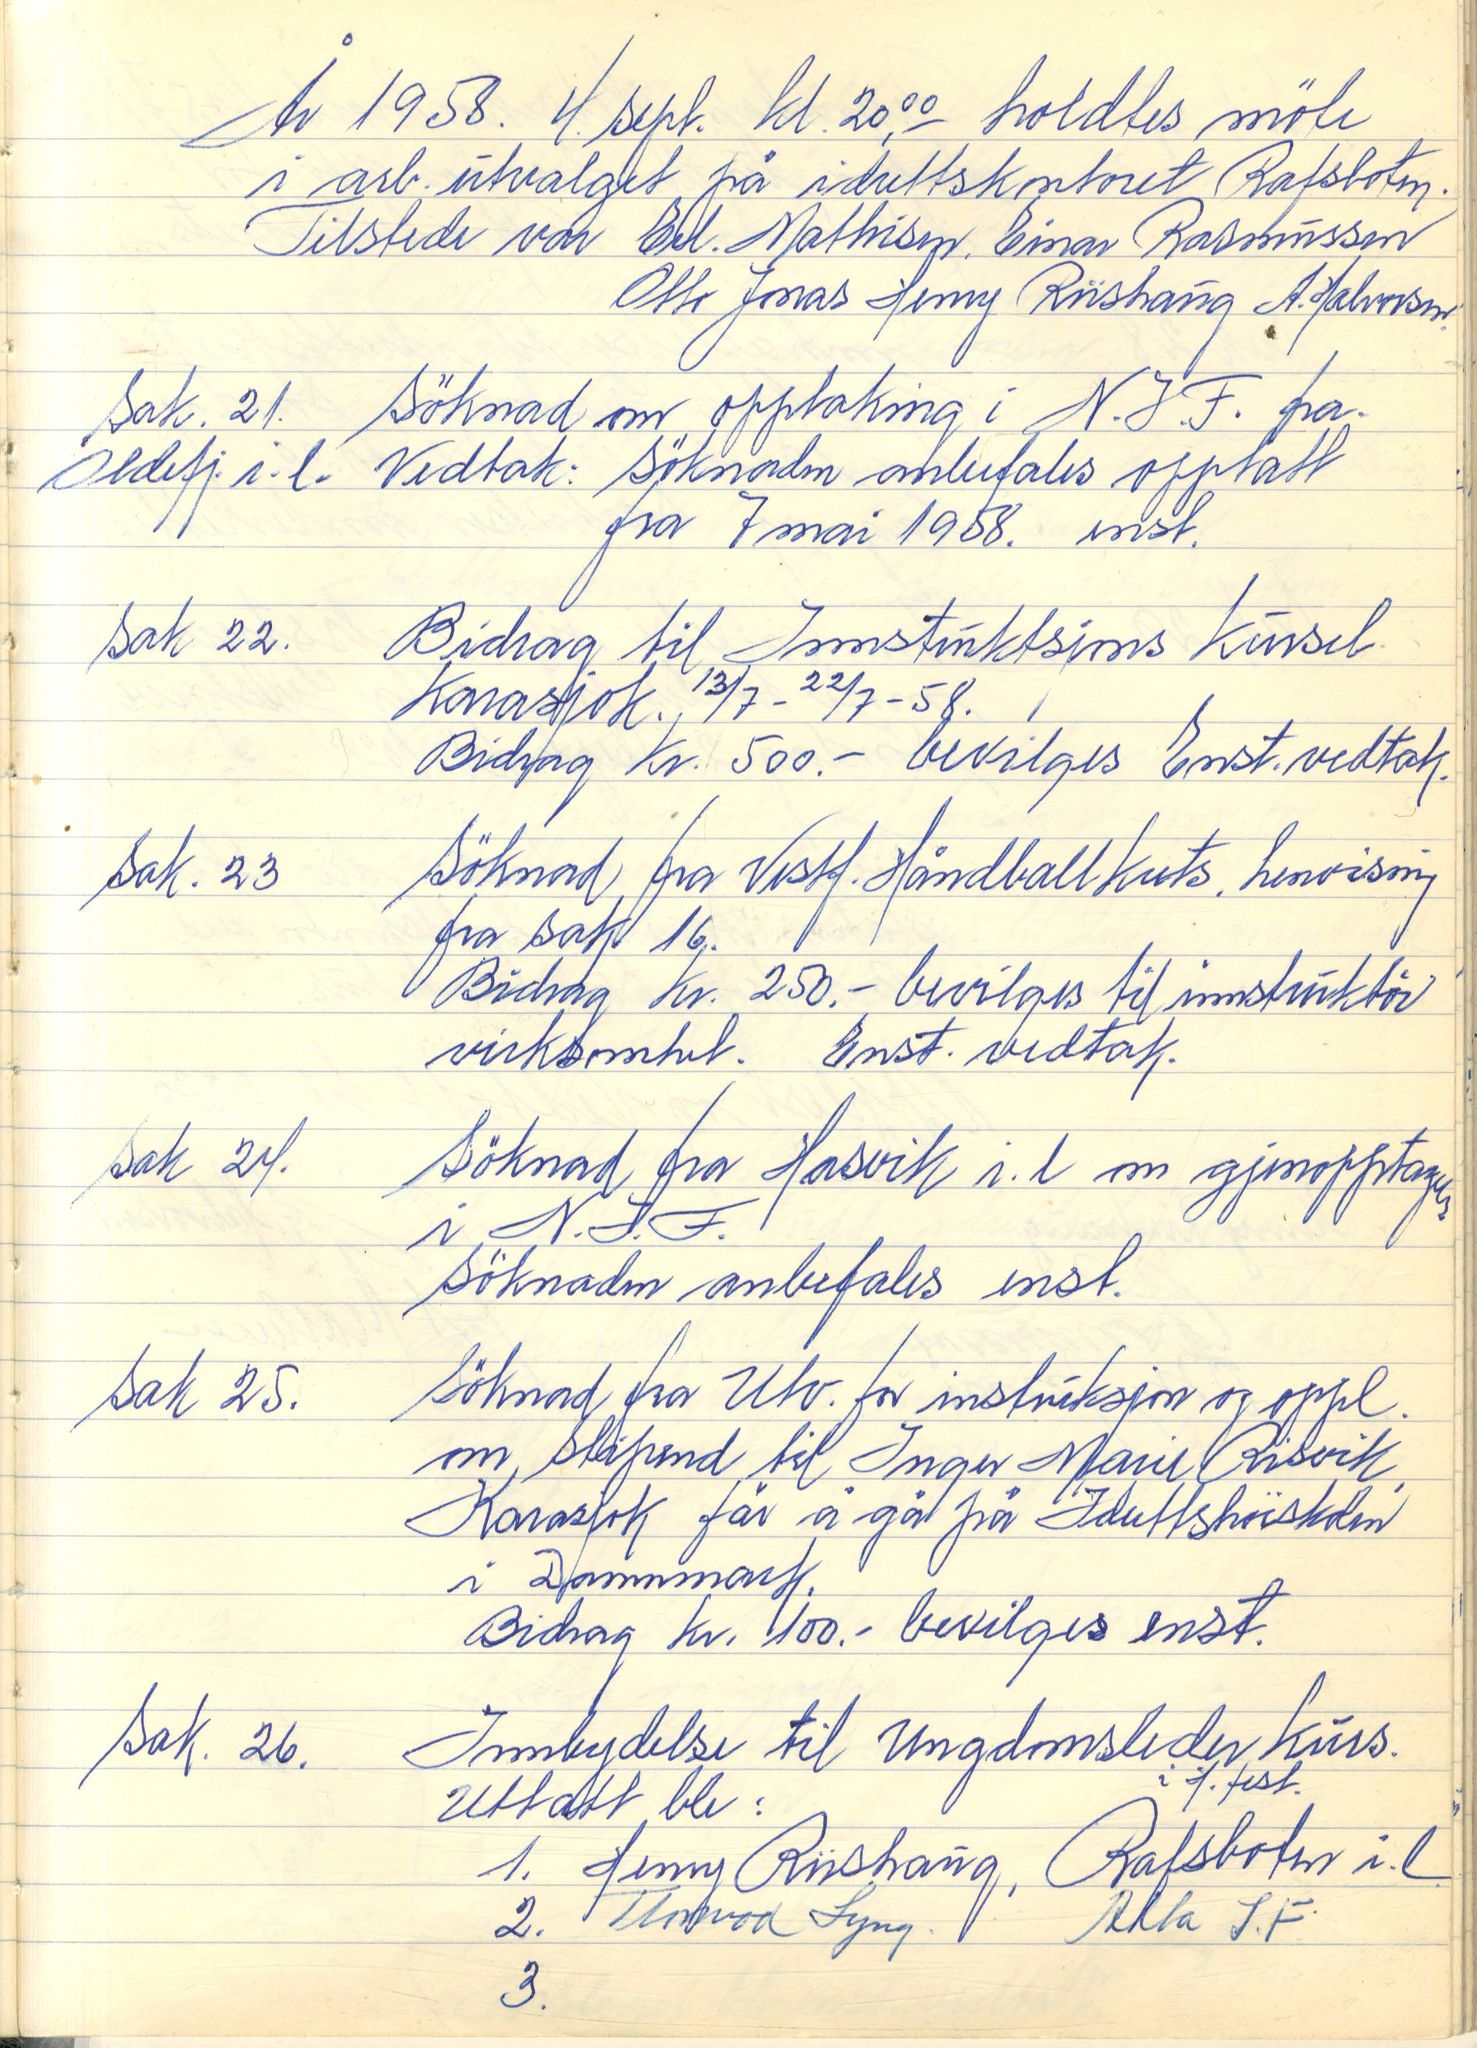 År 1958. 4. sept. kl. 20,00 holdtes möte
i arb. utvalget på idrettskontoret Rafsbotn.
Tilstede var Erl. Mathisen. Einar Rasmussen
Otto Jonas Henry Riishaug A. Halvorsen.
Sak. 21. Söknad om opptaking i N.I.F. fra.
i.l. Vedtak: Söknaden anbefales opptatt
fra 7 mai 1958. enst.
Sak 22. Bidrag til Innstruktsjons Kurset
Karasjok. 13/7 - 22/7 - 58.
Bidrag kr. 500.- bevilges Enst. vedtak.
Sak. 23 Söknad fra Vestf. Håndballkrets. henvisning
fra sak 16.
Bidrag kr. 250.- bevilges til innstruktör
virksomhet. Enst. vedtak.
Sak 24. Söknad fra Hasvik i.l om gjenopptagels
i N.I.F.
Söknaden anbefales enst.
Sak 25. Söknad fra Utv. for instruksjon og oppl.
om stipend til Inger Marie Risvik
Karasjok får å gå på Idrettshöiskolen
i Dannmark.
Bidrag kr. 100.- bevilges enst.
Sak. 26. Innbydelse til Ungdomsleder kurs.
i H. fest.
Uttatt ble:
1. Henry Riishaug, Rafsbotn i.l
2. Thorvod Lyng. Alta I.F.
3.